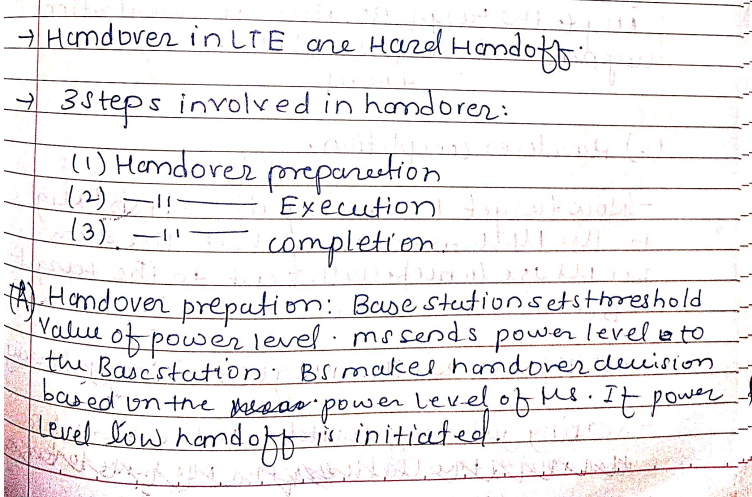 → Handover in LTE are Hard Handoff.
→ 3 steps involved in handover:
(1) Handover preparection
(2) —11— Execution
(3) —11— completion.
(A) Handover prepation: Base station sets threshold
Value of power level. ms sends power level to
the Basestation. BS makes handover decision
based on the power level of Ms. If power
level low handoff is initiated.